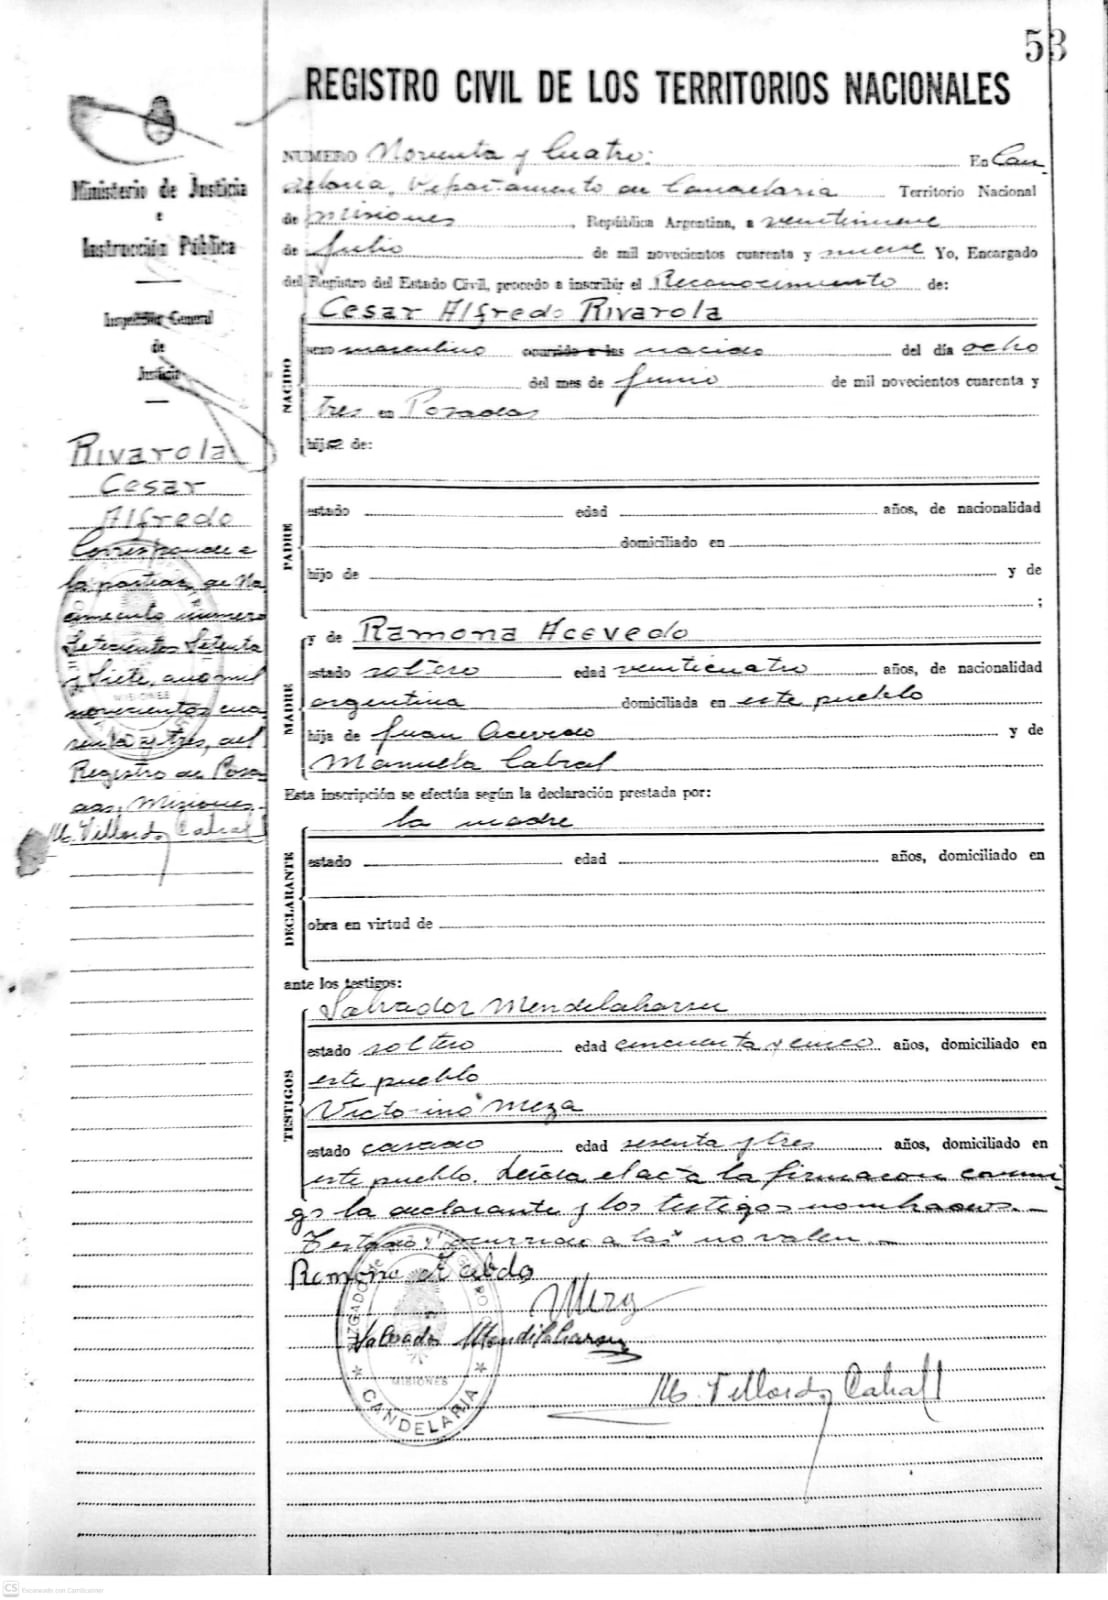 53
REGISTRO CIVIL DE LOS TERRITORIOS NACIONALES
Ministerio de Justicia
e
Instrucción Pública
Inspección General
de
Justicia
NUMERO Noventa y Cuatro: En Can
delaria, Departamento de Candelaria Territorio Nacional
de Misiones, República Argentina, a veintinueve
de Julio de mil novecientos cuarenta y nueve Yo, Encargado
del Registro del Estado Civil, procedo a inscribir el Reconocimiento de:
NACIDO
Cesar Alfredo Rivarola
sexo masculino ocurrido a las nacido del día ocho
del mes de Junio de mil novecientos cuarenta y
tres en Posadas
hijo de:
PADRE
estado edad años, de nacionalidad
domiciliado en
hijo de y de
;
MADRE
y de Ramona Acevedo
estado soltero edad veinticuatro años, de nacionalidad
argentina domiciliada en este pueblo
hija de Juan Acevedo y de
Manuela Cabral
Esta inscripción se efectúa según la declaración prestada por:
DECLARANTE
la madre
estado edad años, domiciliado en
obra en virtud de
ante los testigos:
TESTIGOS
Salvador Mendilaharsu
estado soltero edad cincuenta y cinco años, domiciliado en
este pueblo
Victorino Meza
estado casado edad sesenta y tres años, domiciliado en
este pueblo. Leida el acta la firmaron conmi
go la declarante y los testigos nombrados.—
Testado: "ocurrido a las" no valen.—
Ramona
Meza
Salvador Mendilaharsu
M. Villordo Cabral
JUZGADO DE REGISTRO
MISIONES
CANDELARIA
Rivarola
Cesar
Alfredo
Corresponde a
la partida de Na
cimiento número
Setecientos Setenta
y Siete, año mil
novecientos cua
renta y tres, del
Registro de Posa
das, Misiones.-
M. Villordo Cabral
MISIONES
CS Escaneado con CamScanner